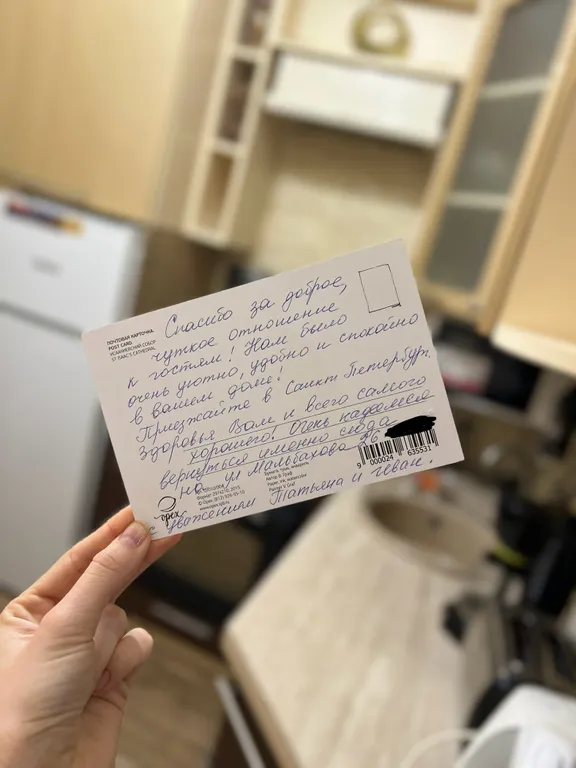 ПОЧТОВАЯ КАРТОЧКА
POST CARD
ИСААКИЕВСКИЙ СОБОР
ST ISAAC'S CATHEDRAL
Спасибо за доброе,
чуткое отношение
к гостям! Нам было
очень уютно, удобно и спокойно
в вашем доме!
Приезжайте в Санкт-Петербург.
Здоровья Вам и всего самого
хорошего! Очень надеемся
вернуться именно сюда
на ул Мальбахова 26
9 000024 635531
орех
С уважением Татьяна и